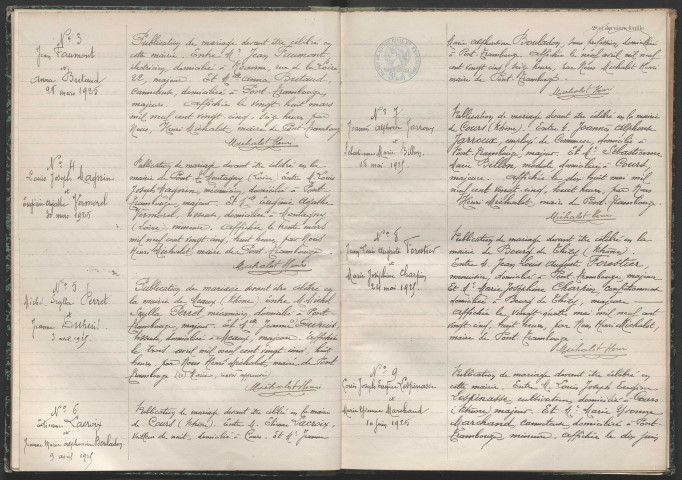 N° 3
Jean Faumont
et
Anna Butaud
28 mars 1925
Publication de mariage devant être célébré en
cette mairie. Entre M. Jean Faumont,
domicilié à Roanne, rue de la Loire
22, majeur. Et Mlle Anna Butaud,
domiciliée à Pont-Trambouze,
majeure. Affichée le vingt huit mars
mil neuf cent vingt cinq, seize heures par
Nous, Henri Michalet, maire de Pont-Trambouze
Michalet Henri
N° 4
Louis Joseph Magnin
et
Eugénie Agathe Vermorel
30 mars 1925
Publication de mariage devant être célébré en la
mairie de Montagny (Loire) Entre M. Louis
Joseph Magnin, mécanicien, domicilié à Pont-
Trambouze, majeur. Et Mlle Eugénie Agathe
Vermorel, tisseuse, domiciliée à Montagny
(Loire) mineure. Affichée le trente mars
mil neuf cent vingt cinq, huit heures, par Nous
Henri Michalet maire de Pont-Trambouze
Michalet Henri
N° 5
Michel Scylla Perret
et
Jeanne Dupuis
3 avril 1925
Publication de mariage devant être célébré en
la mairie de Meaux (Rhône) Entre M. Michel
Scylla Perret, mécanicien, domicilié à Pont-
Trambouze, majeur. Et Mlle Jeanne Dupuis
tisseuse, domiciliée à Meaux, majeure. Affichée
le trois avril mil neuf cent vingt cinq, huit
heures, par Nous Henri Michalet, maire de Pont-
Trambouze
Michalet Henri
N° 6
Etienne Lacroix
et
Jeanne Marie Alphonsine Bouladon
9 avril 1925
Publication de mariage devant être célébré en la mairie
de Cours (Rhône). Entre M. Etienne Lacroix,
veilleur de nuit, domicilié à Cours. Et Mlle Jeanne
Marie Alphonsine Bouladon, sans profession, domiciliée
à Pont-Trambouze. Affichée le neuf avril mil neuf
cent vingt cinq, seize heures, par Nous Michalet Henri
maire de Pont-Trambouze.
Michalet Henri
N° 7
Joannès Alphonse Jarroux
et
Sébastienne Marie Billon
18 mai 1925
Publication de mariage devant être célébré en la mairie
de Cours (Rhône). Entre M. Joannès Alphonse
Jarroux, employé de Commerce, domicilié à
Pont-Trambouze, majeur. Et Mlle Sébastienne
Marie Billon, modiste domiciliée à Cours,
majeure. Affichée le dix huit mai mil
neuf cent vingt cinq, huit heures, par Nous
Henri Michalet maire de Pont-Trambouze.
Michalet Henri
N° 8
Jean Louis Auguste Forestier
et
Marie Joséphine Charpin
24 mai 1925
Publication de mariage devant être célébré en la
mairie de Bourg de Thizy (Rhône).
Entre M. Jean Louis Auguste Forestier,
domicilié à Pont-Trambouze majeur
Et Mlle Marie Joséphine Charpin,
domiciliée à Bourg de Thizy, majeure
Affichée le vingt quatre mai mil neuf cent
vingt cinq, huit heures, par Nous Henri Michalet,
maire de Pont-Trambouze
Michalet Henri
N° 9
Louis Joseph Eugène Lespinasse
et
Marie Yvonne Marchand
10 juin 1925
Publication de mariage devant être célébré en
cette mairie. Entre M. Louis Joseph Eugène
Lespinasse cultivateur, domicilié à Cours
(Rhône) majeur. Et Mlle Marie Yvonne
Marchand, domiciliée à Pont-
Trambouze mineure. Affichée le dix juin